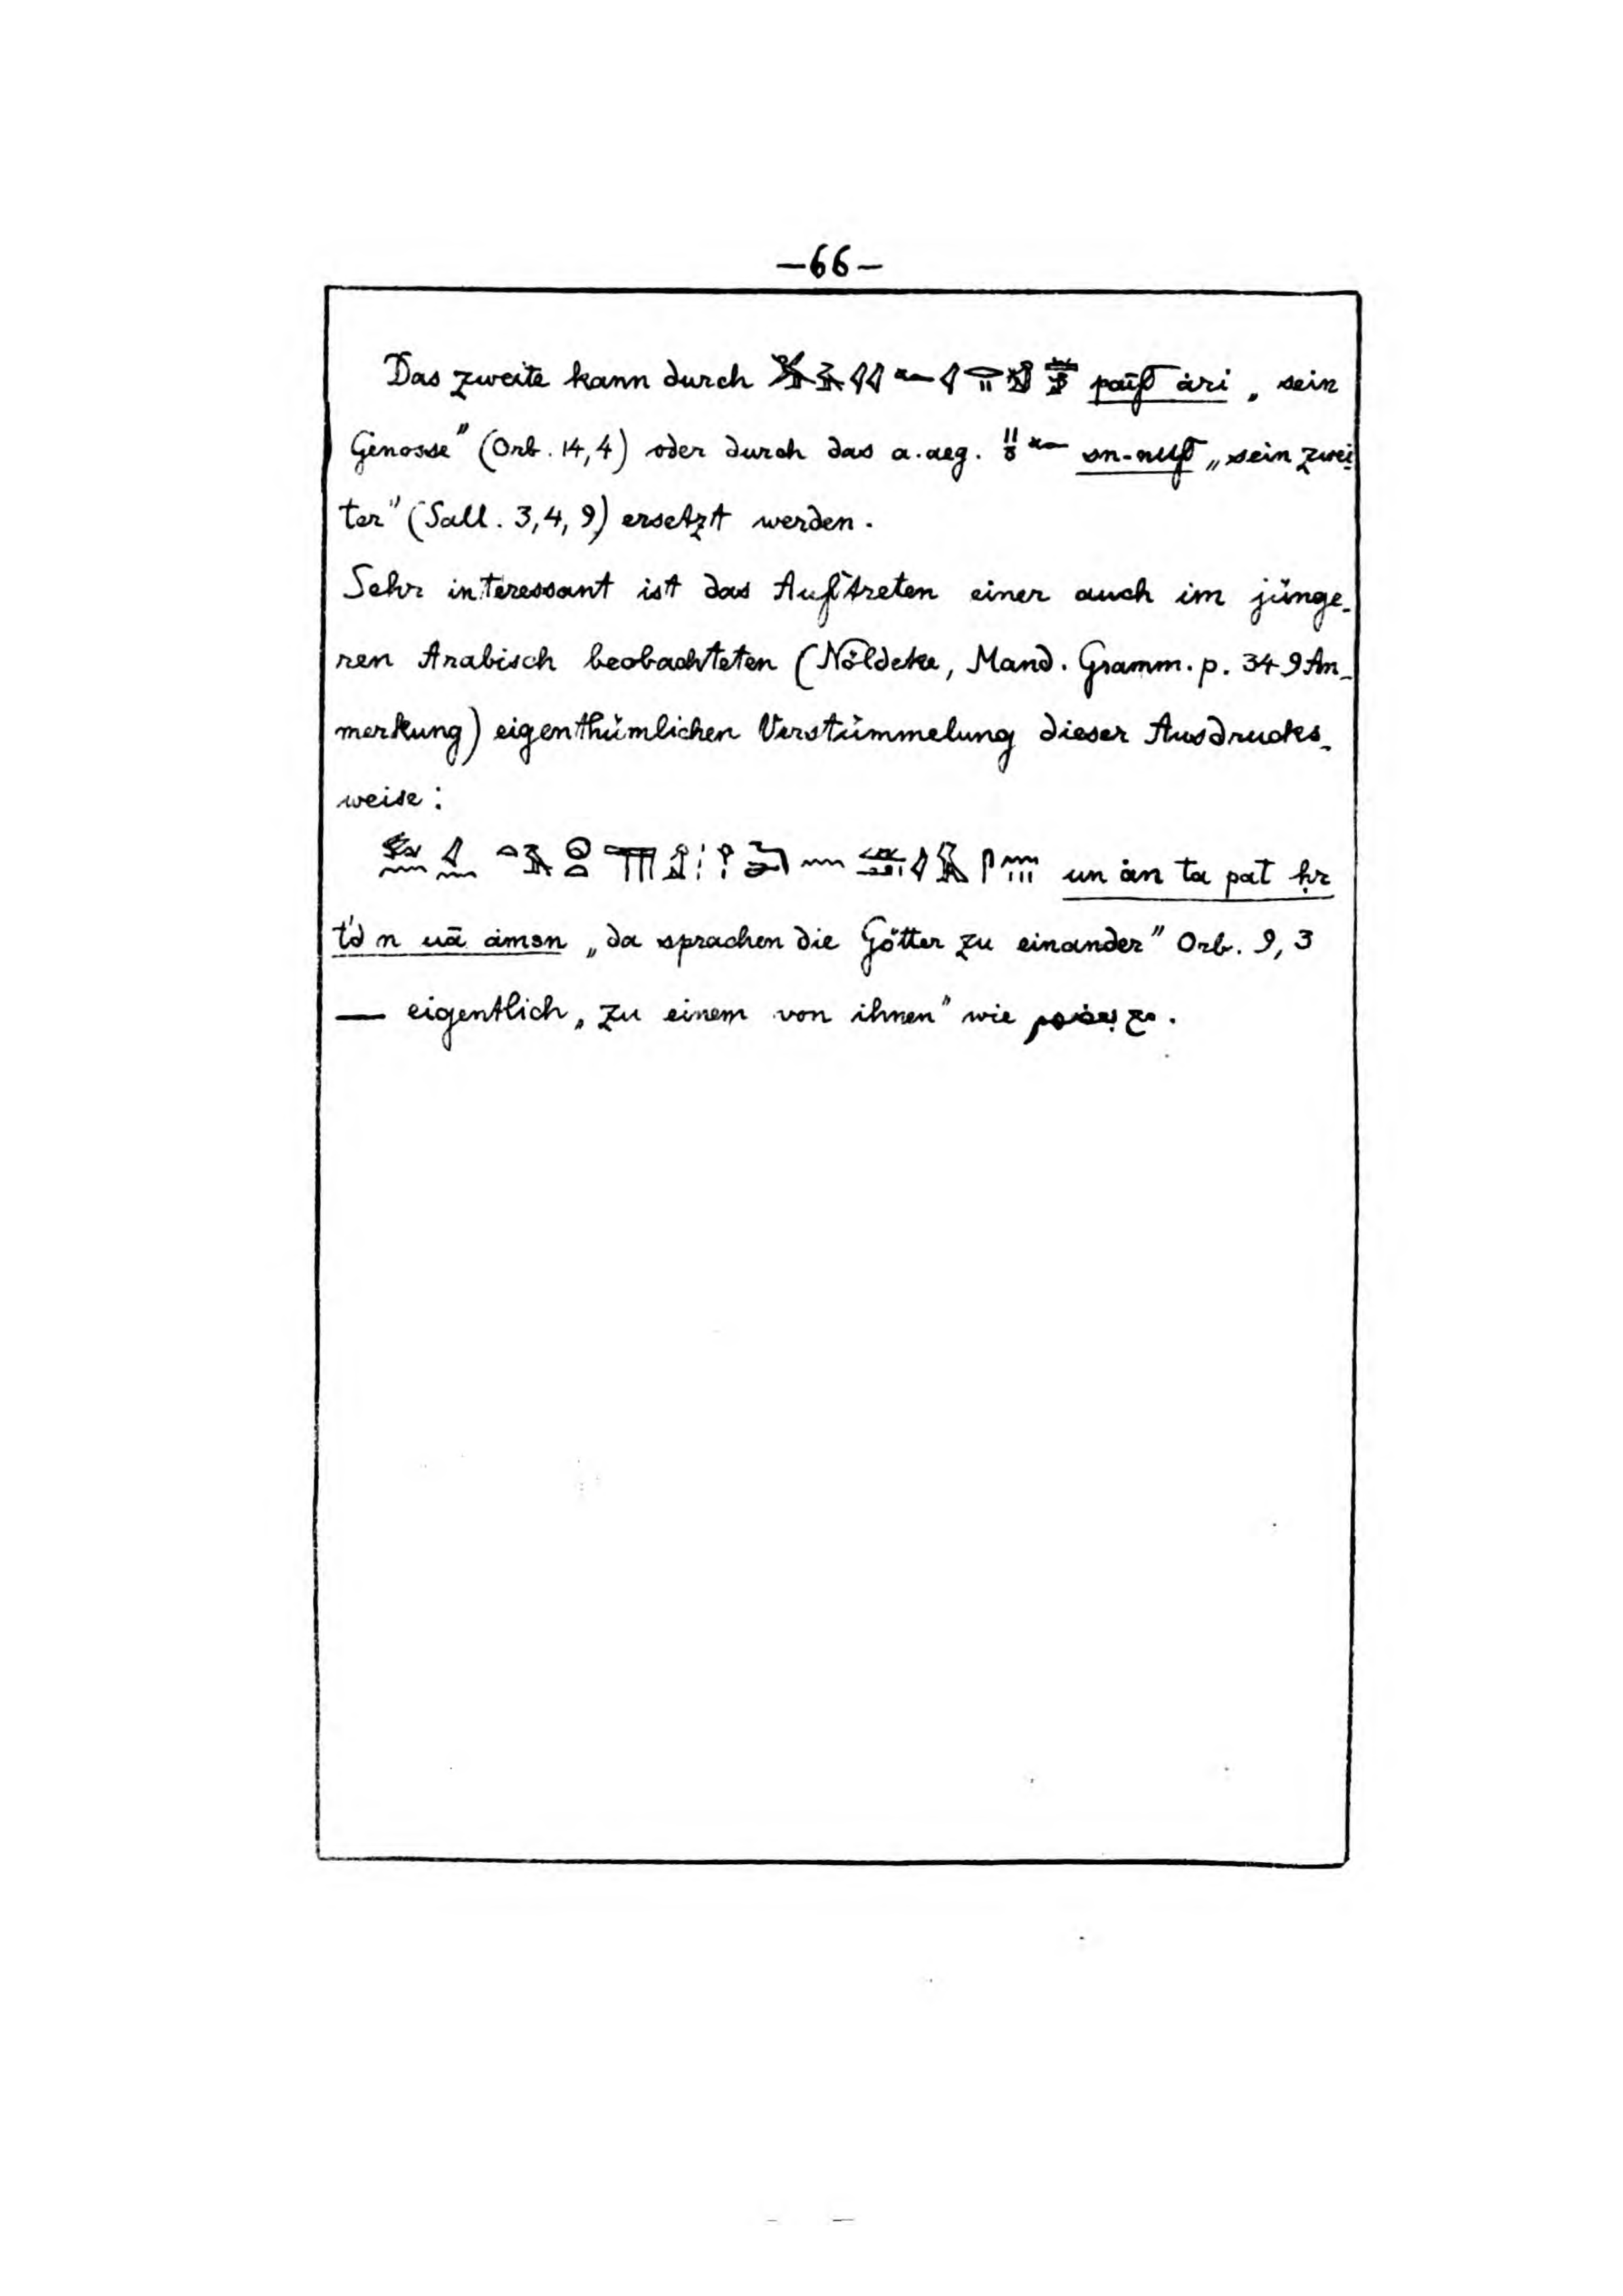 —66—
Das zweite kann durch paif ari „sein
Genosse" (Orb. 14, 4) oder durch das a. aeg. sn-nuf „sein zwei-
ter" (Sall. 3, 4, 9) ersetzt werden.
Sehr interessant ist das Auftreten einer auch im jünge-
ren Arabisch beobachteten (Nöldeke, Mand. Gramm. p. 349 An-
merkung) eigenthümlichen Verstümmelung dieser Ausdrucks-
weise:
un ȧn ta pat ḥr
t'd n uā ȧmsn „da sprachen die Götter zu einander" Orb. 9, 3
— eigentlich „zu einem von ihnen" wie مع بعضهم.